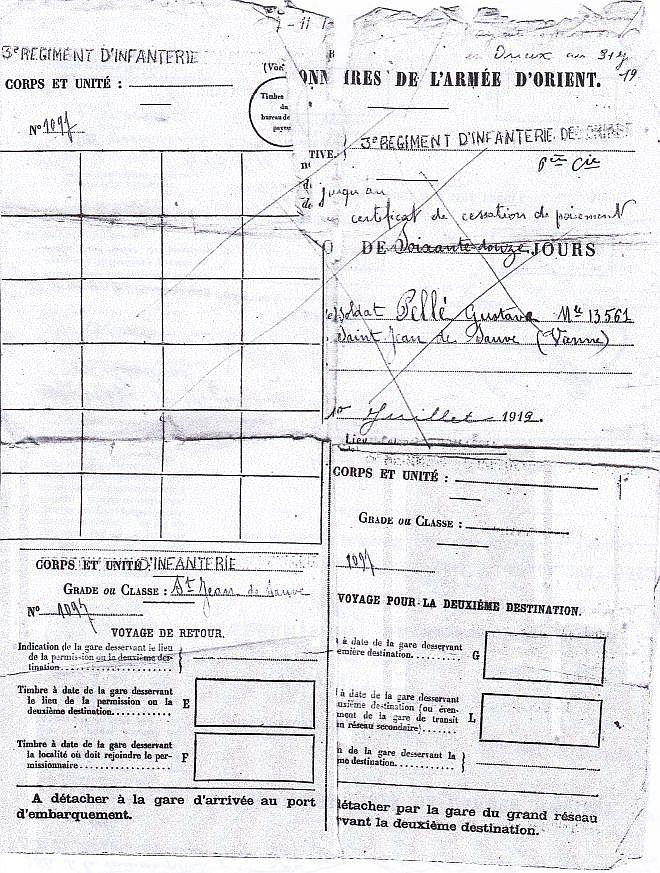 3e REGIMENT D'INFANTERIE
CORPS ET UNITÉ :
No 1097
(Voir
Timbre
du
bureau de
payeur
7-11
Dreux
19
ONN IRES DE L'ARMÉE D'ORIENT.
TIVE. } 3e REGIMENT D'INFANTERIE DE
Cie
jusqu'au
certificat de cessation de paiement
O DE Soixante douze JOURS
soldat Pellé Gustave Mle 13561
Saint Jean de Sauve (Vienne)
1er Juillet 1919.
Lieu
CORPS ET UNITÉ D'INFANTERIE
GRADE ou CLASSE : St Jean de Sauve
No 1097
VOYAGE DE RETOUR.
Indication de la gare desservant le lieu
de la permission ou la deuxième des-
tination
Timbre à date de la gare desservant
le lieu de la permission ou la
deuxième destination
E
Timbre à date de la gare desservant
la localité où doit rejoindre le per-
missionnaire
F
A détacher à la gare d'arrivée au port
d'embarquement.
CORPS ET UNITÉ :
GRADE ou CLASSE :
1097
VOYAGE POUR LA DEUXIÈME DESTINATION.
à date de la gare desservant
emière destination
G
à date de la gare desservant
uxième destination (ou éven-
ment de la gare de transit
n réseau secondaire)
L
n de la gare desservant la
me destination.
détacher par la gare du grand réseau
vant la deuxième destination.